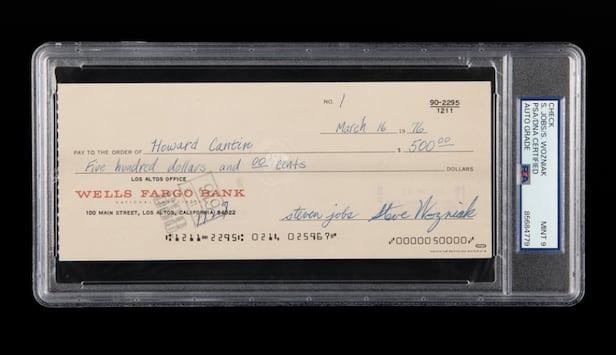 NO. 1
90-2295
1211
March 16 1976
PAY TO THE ORDER OF Howard Cantin $ 500 00
Five hundred dollars, and 00 cents DOLLARS
LOS ALTOS OFFICE
WELLS FARGO BANK
100 MAIN STREET, LOS ALTOS, CALIFORNIA 94022
steven jobs Steve Wozniak
⑆1211⑉2295⑆ 0214 025967⑈ ⑈0000050000⑈
CHECK
S. JOBS/S. WOZNIAK
PSA/DNA CERTIFIED
AUTO GRADE MINT 9
PSA 85684779